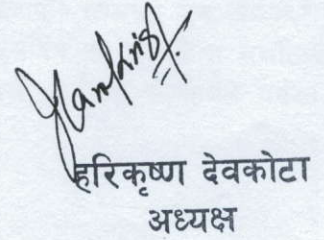 हरिकृष्ण देवकोटा
अध्यक्ष